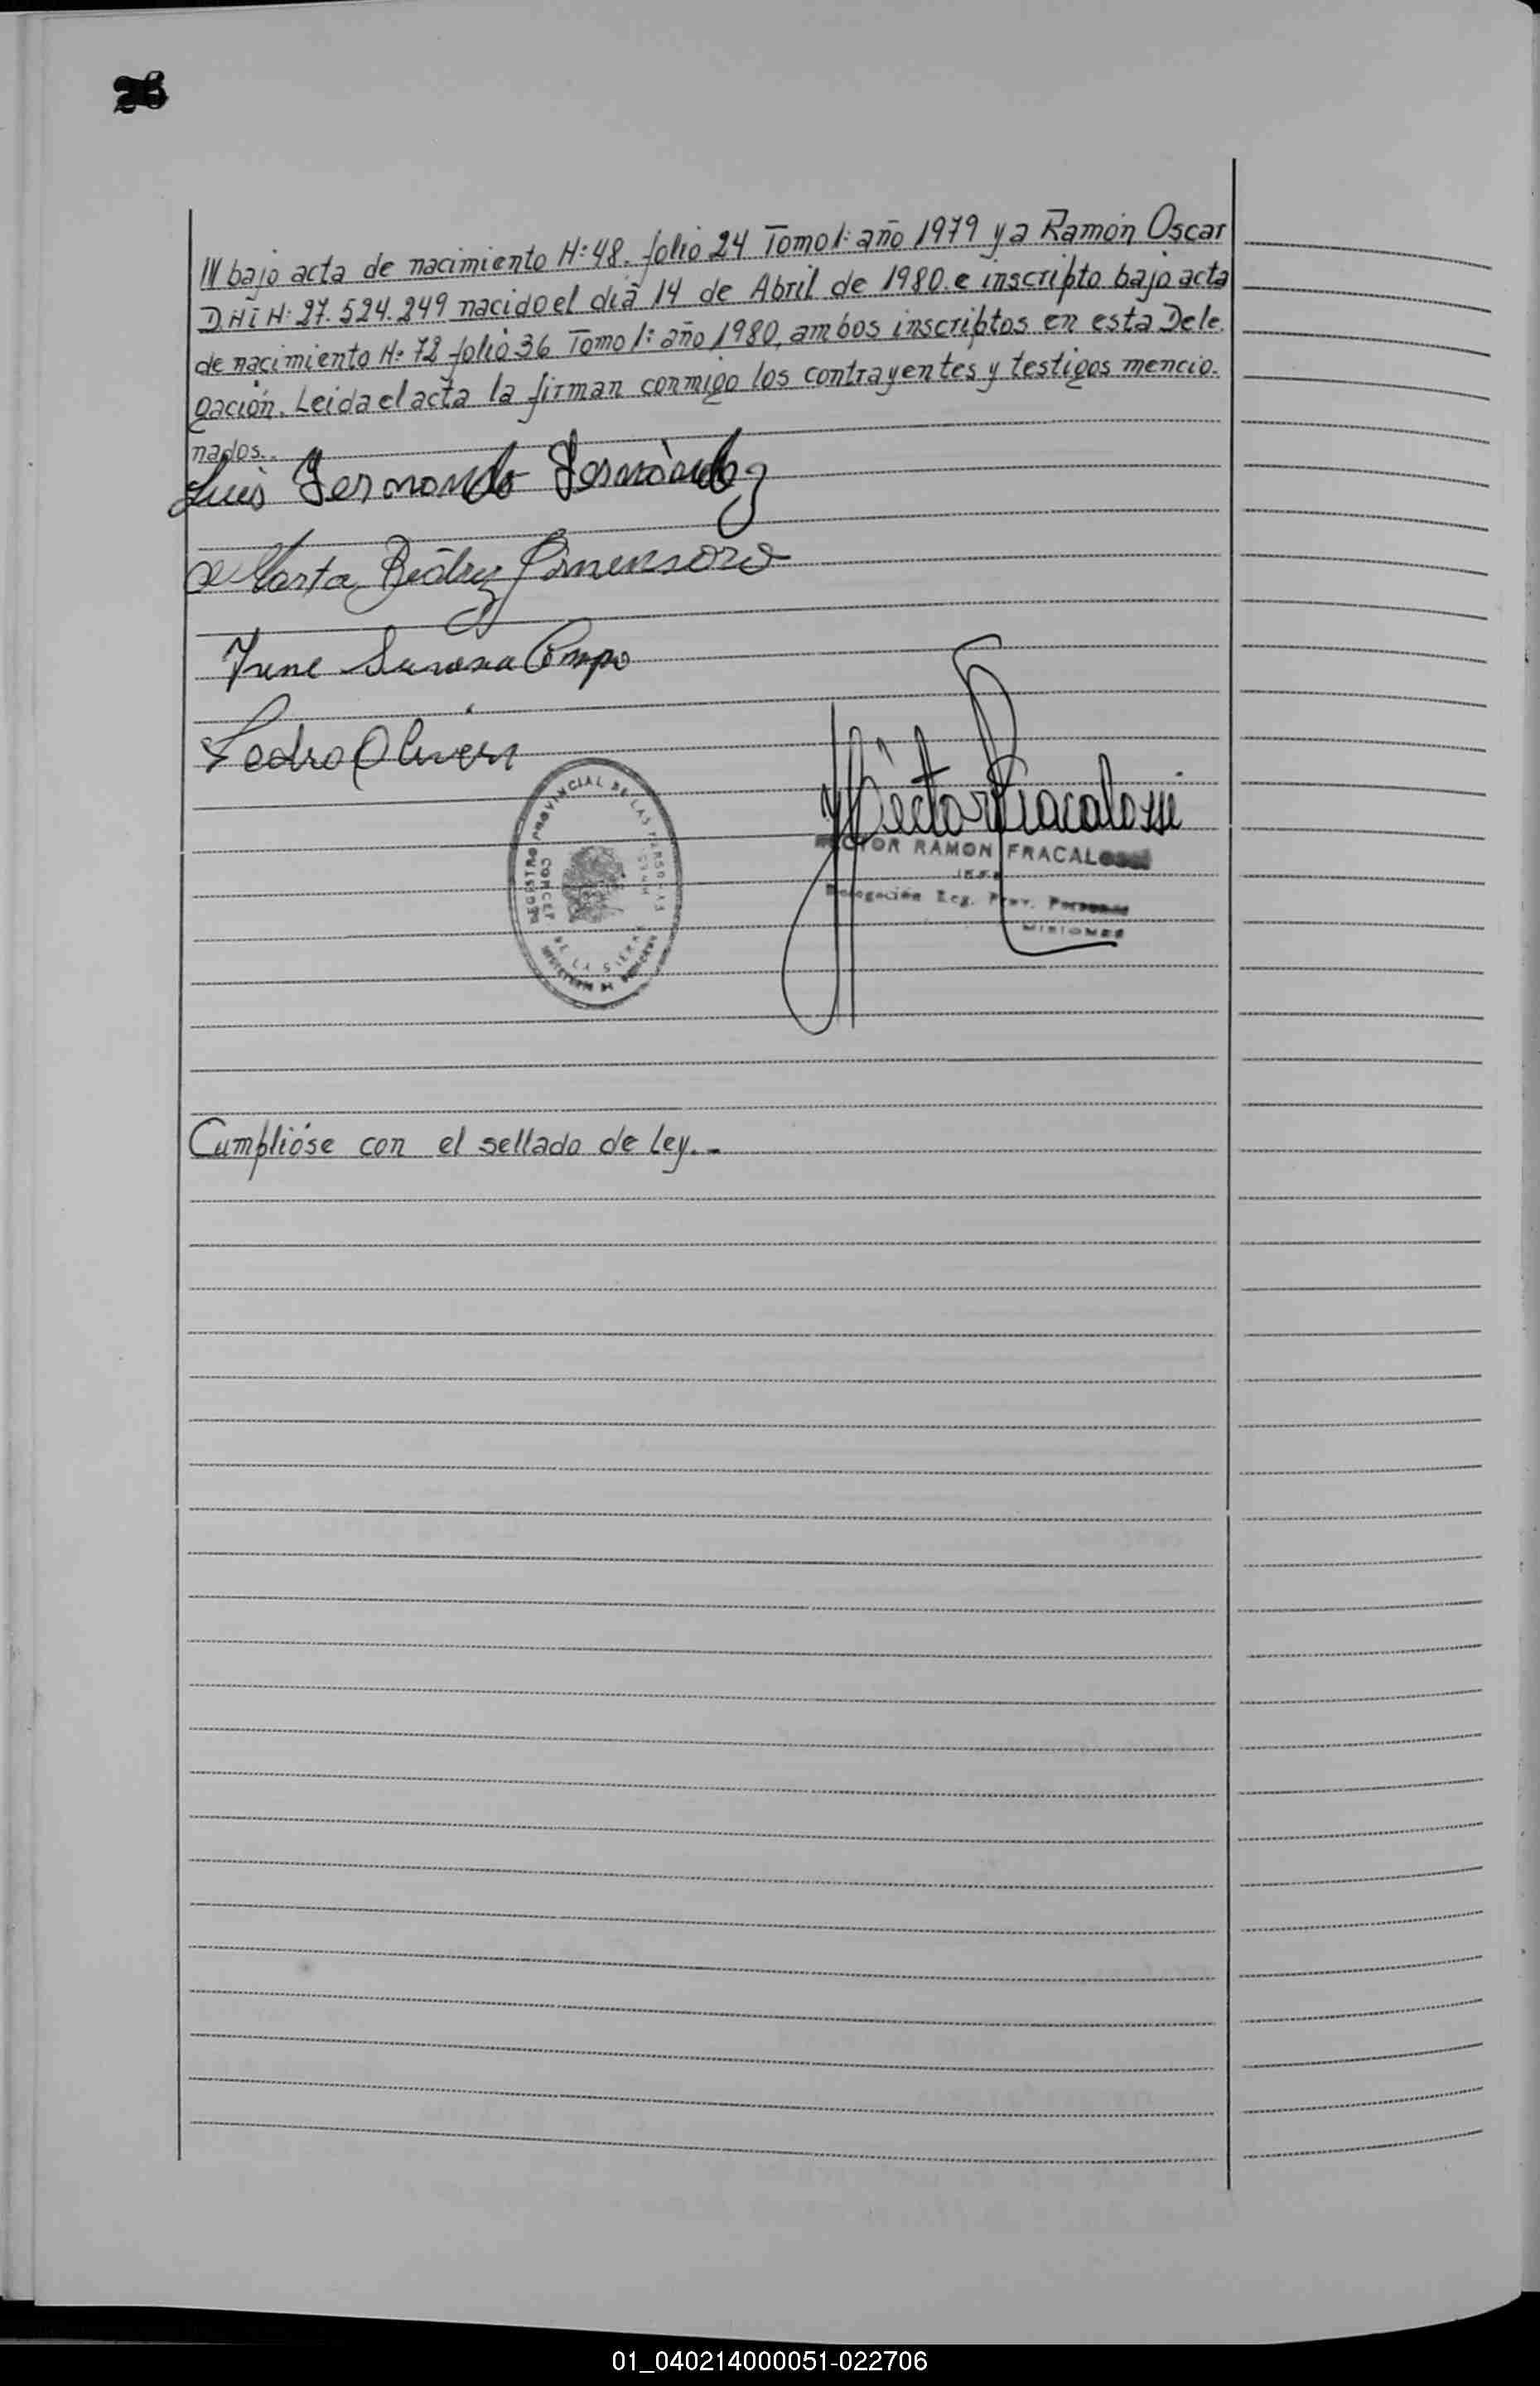 26
IV bajo acta de nacimiento N: 48. folio 24 Tomo 1: año 1979 y a Ramón Oscar
D.N.I N: 27.524.249 nacido el día 14 de Abril de 1980. e inscripto bajo acta
de nacimiento N: 72 folio 36 Tomo 1: año 1980, ambos inscriptos en esta Dele
gación. Leida el acta la firman conmigo los contrayentes y testigos mencio-
nados..
Luis Fernando Fernández
Marta Beatriz
Irene Susana Campo
Pedro Olivera
REGISTRO PROVINCIAL DE LAS PERSONAS
CONCEP
DE LA SIERRA
Héctor R Fracalossi
HECTOR RAMON FRACALOSSI
JEFE
Delegación Reg. Prov. Personas
MISIONES
Cumplióse con el sellado de Ley.-
01_040214000051-022706